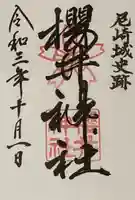 尼崎城史跡
櫻井神社
令和三年十月一日